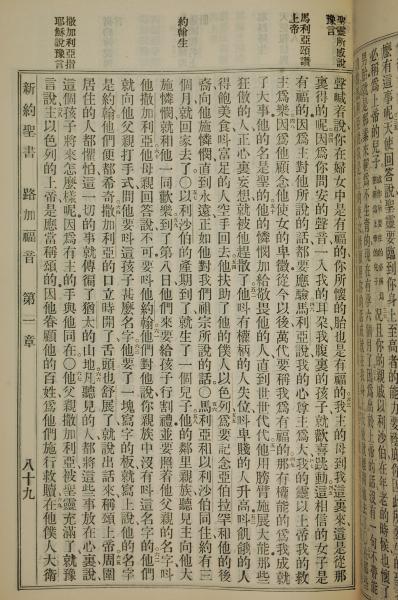 麼有這事呢天使回答說聖靈要臨到你身上至高者的能力要
必稱爲上帝的兒子
聖靈所感說
豫言
馬利亞頌讚
上帝
約翰生
撒加利亞指
耶穌說豫言
聲喊着說你在婦女中是有福的你所懷的胎也是有福的我主的母到我這裏來這是從那
裏得的呢因爲你問安的聲音一入我的耳朵我腹裏的孩子就歡喜跳動這相信的女子是
有福的因爲主對他所說的話都要應驗馬利亞說我的心尊主爲大我的靈以上帝我的救
主爲樂因爲他顧念他使女的卑微從今以後萬代要稱我爲有福的那有權能的爲我成就
了大事他的名是聖的他的憐憫加給敬畏他的人直到世世代代他用膀臂施展大能那些
狂傲的人正心裏妄想就被他趕散了他叫有權柄的人失位叫卑賤的人升高叫飢餓的人
得飽美食叫富足的人空手回去他扶助了他的僕人以色列爲要記念亞伯拉罕和他的後
裔向他施憐憫直到永遠正如他對我們祖宗所說的話○馬利亞和以利沙伯同住約有三
個月就回家去了○以利沙伯的產期到了就生了一個兒子他的鄰里親族聽見主向他大
施憐憫就和他一同歡樂到了第八日他們來要給孩子行割禮並要照着他父親的名字叫
他撒加利亞他母親回答說不可要叫他約翰他們對他說你親族中沒有叫這名字的他們
就向他父親打手式問他要叫這孩子甚麼名字他要了一塊寫字的板就寫上說他的名字
是約翰他們便都希奇撒加利亞的口立時開了舌頭也舒展了就說出話來稱頌上帝周圍
居住的人都懼怕這一切的事就傳徧了猶太的山地凡聽見的人都將這些事放在心裏說
這個孩子將來怎麼樣呢因爲有主的手與他同在○他父親撒加利亞被聖靈充滿了就豫
言說主以色列的上帝是應當稱頌的因他眷顧他的百姓爲他們施行救贖在他僕人大衛
新約聖書 路加福音 第一章 八十九